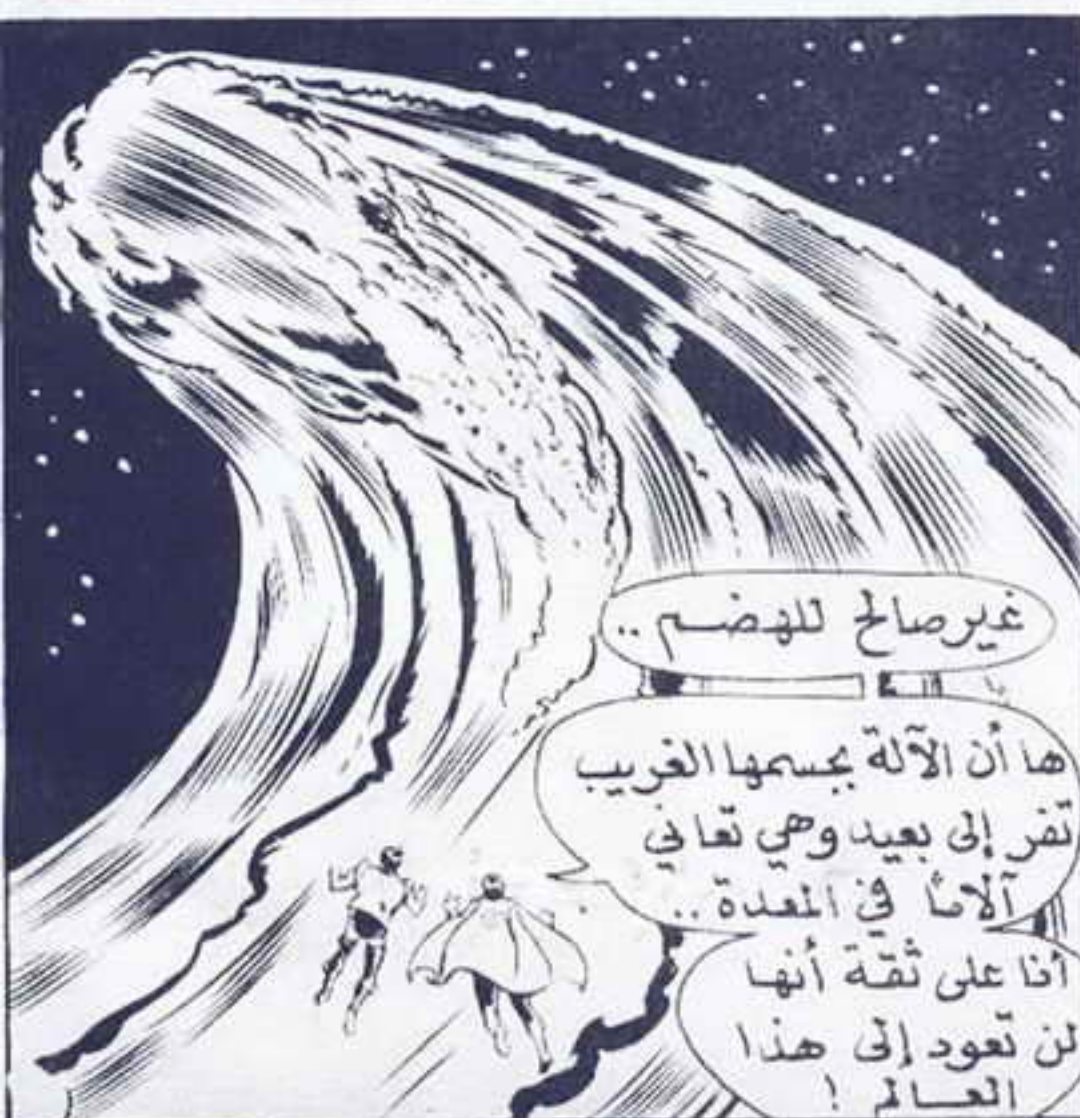 غير صالح للهضم ..
ها أن الآلة بجسمها الغريب
تفر إلى بعيد وهي تعاني
آلامًا في المعدة ..
أنا على ثقة أنها
لن تعود إلى هذا
العالم !